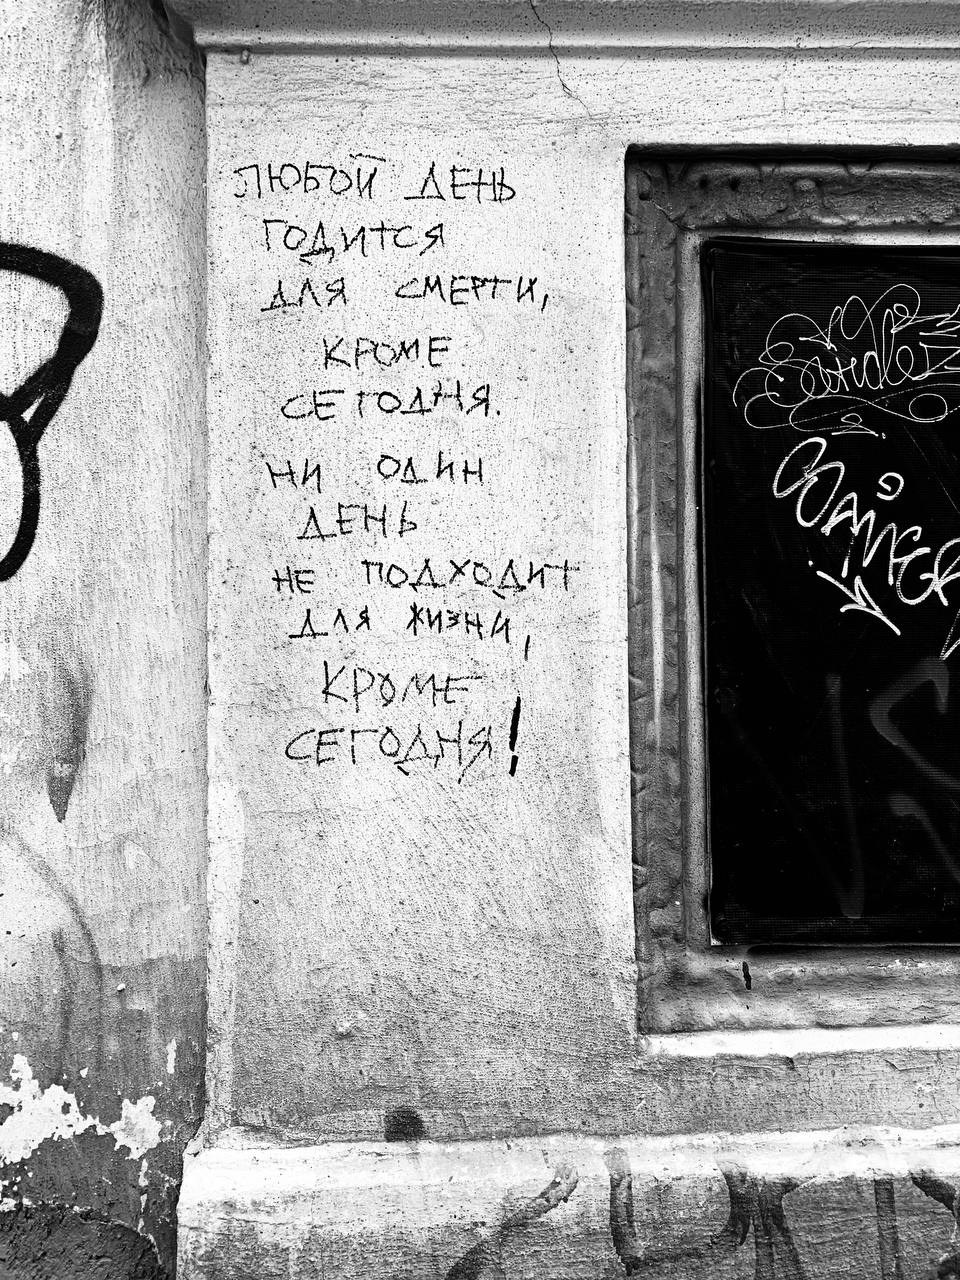 ЛЮБОЙ ДЕНЬ
ГОДИТСЯ
ДЛЯ СМЕРТИ,
КРОМЕ
СЕГОДНЯ.
НИ ОДИН
ДЕНЬ
НЕ ПОДХОДИТ
ДЛЯ ЖИЗНИ,
КРОМЕ
СЕГОДНЯ!